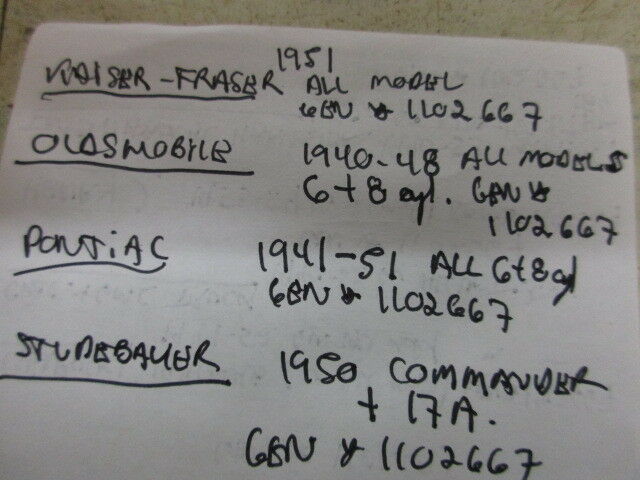 KAISER-FRASER 1951 ALL MODEL
GEN # 1102667
OLDSMOBILE 1940-48 ALL MODELS
6+8 cyl. GEN #
1102667
PONTIAC 1941-51 ALL 6+8 cyl
GEN # 1102667
STUDEBAKER 1950 COMMANDER
+ 17A.
GEN # 1102667